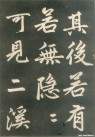 其後若有
若無隱隱
可見二溪